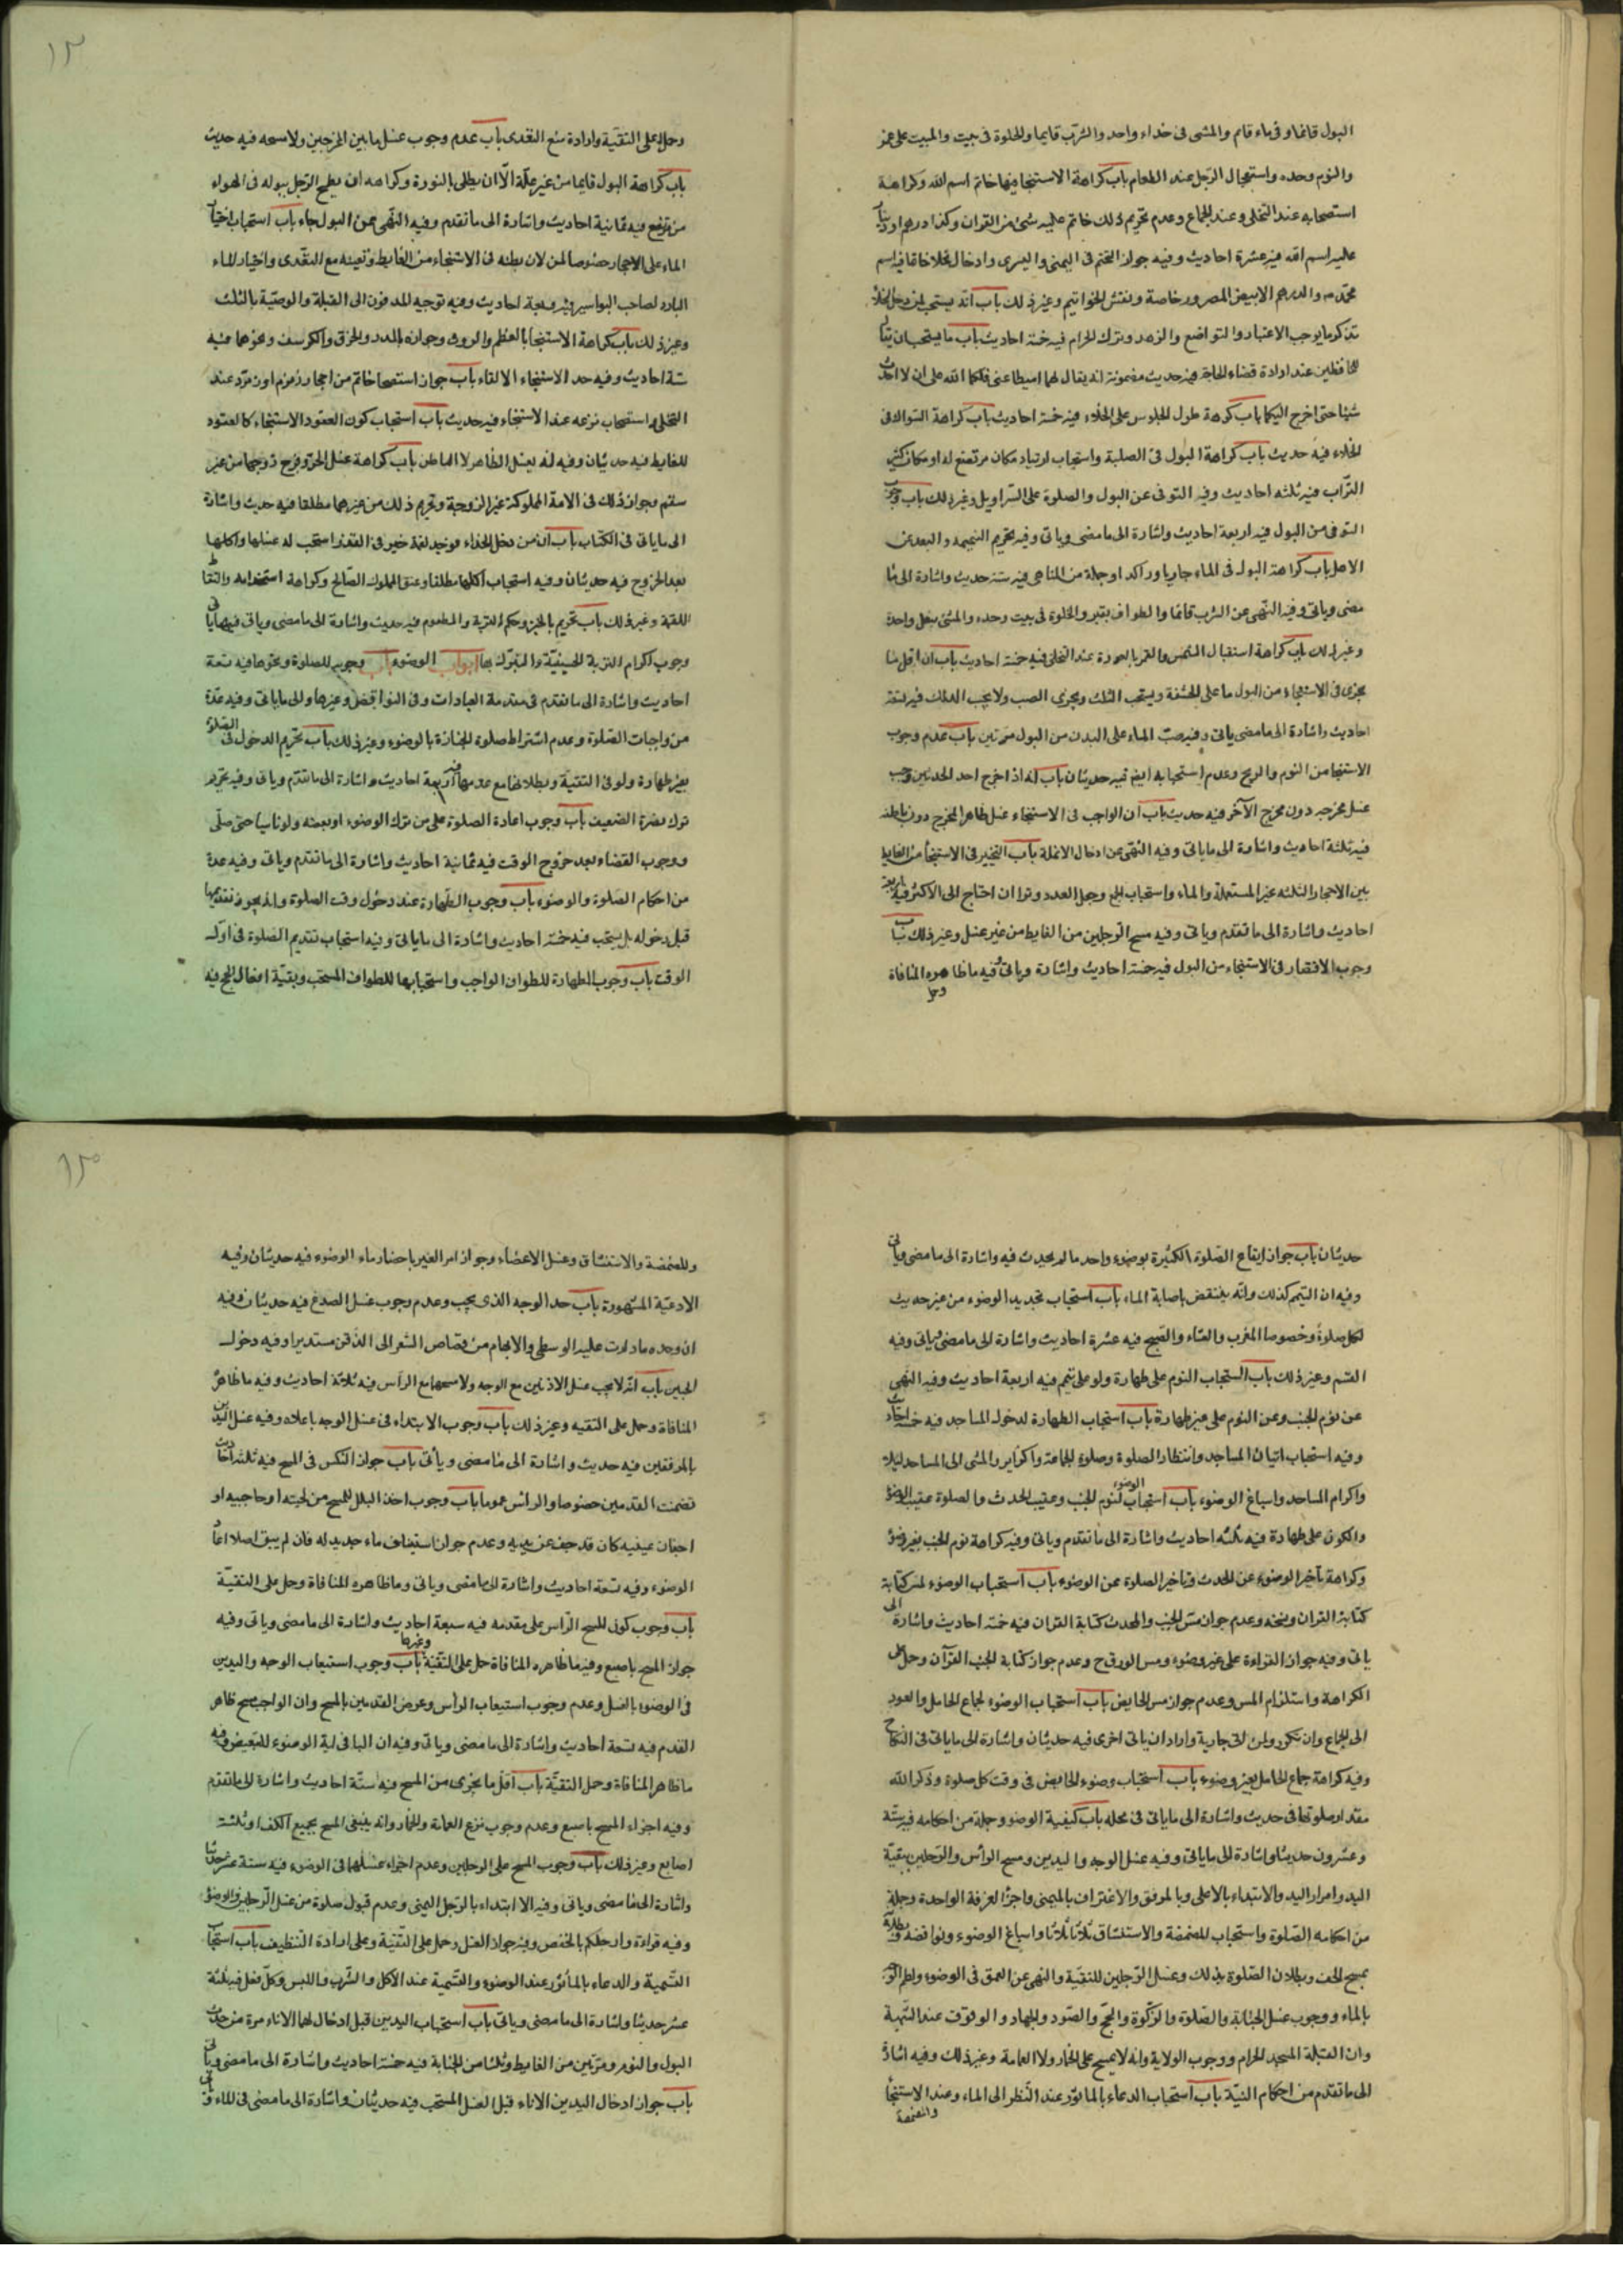 البول قائما وفى ماء قائم والمشى فى حذاء واحد والشرب قايما والخلوة فى بيت والمبيت على غمر
والنوم وحده واستعجال الرجل عند الطعام باب كراهة الاستنجا بيد فيها خاتم اسم الله وكراهة
استصحابه عند التخلى وعند الجماع وعدم تحريم ذلك خاتم عليه شئ من القران وكذا درهم او دينار
عليه اسم الله فيه عشرة احاديث وفيه جواز التختم فى اليمنى واليسرى وادخال الخلا خاتما فيه اسم
محمد ص والدرهم الابيض المصرور خاصة ونقش الخواتيم وغير ذلك باب انه يستحب لمن دخل الخلا
تذكر ما يوجب الاعتبار والتواضع والزهد وترك الحرام فيه خمسة احاديث باب ما يستحب ان يقال
للحافظين عند ارادة قضاء الحاجة فيه حديث مضمونه انه يقال لهما اميطا عنى فلكما الله على ان لا احدث
شيئا حتى اخرج اليكما باب كرهة طول الجلوس على الخلاء فيه خمسة احاديث باب كراهة السواك فى
الخلاء فيه حديث باب كراهة البول فى الصلبة واستحباب ارتياد مكان مرتفع له او مكان كثير
التراب فيه ثلثه احاديث وفيه التوقى عن البول والصلوة على السراويل وغير ذلك باب وجوب
التوقى من البول فيه اربعة احاديث واشارة الى ما مضى وياتى وفيه تحريم النميمه والبعد من
الاهل باب كراهة البول فى الماء جاريا وراكد او جملة من المناهى فيه ستة حديث واشارة الى ما
مضى وياتى وفيه النهى عن الشرب قائما والطواف بقبر والخلوة فى بيت وحده والمشى بنعل واحدة
وغير ذلك باب كراهة استقبال الشمس والقمر بالعورة عند التخلى فيه خمسة احاديث باب ان اقل ما
يجزى فى الاستنجاء من البول ما على الحشفة ويستحب الثلث ويجزى الصب ولا يجب الدلك فيه تسعة
احاديث واشارة الى ما مضى ياتى وفيه صب الماء على البدن من البول مرتين باب عدم وجوب
الاستنجا من النوم والريح وعدم استحبابه ايضا فيه حديثان باب انه اذا خرج احد الحدثين وجب
غسل مخرجه دون مخرج الآخر فيه حديث باب ان الواجب فى الاستنجاء غسل ظاهر المخرج دون باطنه
فيه ثلثة احاديث واشارة الى ما ياتى وفيه النهى عن ادخال الانملة باب التخيير فى الاستنجا من الغايط
بين الاحجار الثلثه غير المستعملة والماء واستحباب الجمع وجعل العدد وترا ان احتاج الى الاكثر فيه اربعة
احاديث واشارة الى ما تقدم وياتى وفيه مسح الرجلين من الغايط من غير غسل وغير ذلك باب
وجوب الاقتصار فى الاستنجاء من البول فيه خمسة احاديث واشارة وياتى وفيه ما ظاهره المنافاة
وحمل
وحمل على التقية وارادة منع التعدى باب عدم وجوب غسل ما بين المخرجين ولا مسحه فيه حديث
باب كراهة البول قايما من غير علة الا ان يطلى بالنورة وكراهه ان يطمح الرجل ببوله فى الهواء
من مرتفع فيه ثمانية احاديث واشارة الى ما تقدم وفيه النهى عن البول جاء باب استحباب اختيار
الماء على الاحجار خصوصا لمن لان بطنه فى الاستنجاء من الغايط وتعينه مع التعدى واختيار الماء
البارد لصاحب البواسير فيه سبعة احاديث وفيه توجيه المدفون الى القبلة والوصية بالثلث
وغير ذلك باب كراهة الاستنجا بالعظم والروث وجوازه بالمدر والخرق والكرسف ونحوهما فيه
ستة احاديث وفيه حد الاستنجاء الانقاء باب جواز استصحاب خاتم من احجار زمزم او زمرد عند
التخلى واستحباب نزعه عند الاستنجاء فيه حديث باب استحباب كون القعود للاستنجاء كالقعود
للغايط فيه حديثان وفيه انه يغسل الظاهر لا الباطن باب كراهة غسل الحرة فرج زوجها من غير
سقم وجواز ذلك فى الامة المملوكة غير الزوجة وتحريم ذلك من غيرهما مطلقا فيه حديث واشارة
الى ما ياتى فى الكتاب باب ان من دخل الخلاء فوجد لقمة خبز فى القذر استحب له غسلها واكلها
بعد الخروج فيه حديثان وفيه استحباب اكلها مطلقا وعتق المملوك الصالح وكراهة استخدامه والتقاط
اللقمة وغير ذلك باب تحريم بالخبز وحكم التربة والمطعوم فيه حديث واشارة الى ما مضى وياتى فيهما ياتى
وجوب اكرام التربة الحسينية والتبرك بها ابواب الوضوء باب وجوبه للصلوة ونحوها فيه تسعة
احاديث واشارة الى ما تقدم فى مقدمة العبادات وفى النواقض وغيرها والى ما ياتى وفيه عدة
من واجبات الصلوة وعدم اشتراط صلوة الجنازة بالوضوء وغير ذلك باب تحريم الدخول فى الصلوة
بغير طهارة ولو فى التقية وبطلانها مع عدمها فيه اربعة احاديث واشارة الى ما تقدم وياتى وفيه تحريم
ترك نصرة الضعيف باب وجوب اعادة الصلوة على من ترك الوضوء او بعضه ولو ناسيا حتى صلى
ووجوب القضاء بعد خروج الوقت فيه ثمانية احاديث واشارة الى ما تقدم وياتى وفيه عدة
من احكام الصلوة والوضوء باب وجوب الطهارة عند دخول وقت الصلوة وانه يجوز تقديمها
قبل دخوله بل يستحب فيه خمسة احاديث واشارة الى ما ياتى وفيه استحباب تقديم الصلوة فى اول
الوقت باب وجوب الطهارة للطواف الواجب واستحبابها للطواف المستحب وبقية افعال الحج فيه
حديثان باب جواز ايقاع الصلوة الكثيرة بوضوء واحد ما لم يحدث فيه واشارة الى ما مضى وياتى
وفيه ان التيمم كذلك وانه ينتقض باصابة الماء باب استحباب تجديد الوضوء من غير حديث
لكل صلوة وخصوصا المغرب والعشاء والصبح فيه عشرة احاديث واشارة الى ما مضى وياتى وفيه
القسم وغير ذلك باب استحباب النوم على طهارة ولو على تيمم فيه اربعة احاديث وفيه النهى
عن نوم الجنب وعن النوم على غير طهارة باب استحباب الطهارة لدخول المساجد فيه خمسة احاديث
وفيه استحباب اتيان المساجد وانتظار الصلوة وصلوة الجماعة واكرام زاير والمشى الى المساجد ليلا
واكرام المساجد واسباغ الوضوء باب استحباب الوضوء لنوم الجنب وعقيب الحدث والصلوة عقيب الوضوء
والكون على طهارة فيه ثلثه احاديث واشارة الى ما تقدم وياتى وفيه كراهة نوم الجنب بغير وضوء
وكراهة تاخير الوضوء عن الحدث وتاخير الصلوة عن الوضوء باب استحباب الوضوء لمس كتابة
كتابة القران ونسخه وعدم جواز مس الجنب والمحدث كتابة القران فيه خمسة احاديث واشارة الى
ياتى وفيه جواز القراءة على غير وضوء ومس الورق ح وعدم جواز كتابة الجنب القرآن وحمل على
الكراهة واستلزام المس وعدم جواز مس الحايض باب استحباب الوضوء لجماع الحامل والعود
الى الجماع وان تكرر ولمن اتى جارية واراد ان ياتى اخرى فيه حديثان واشارة الى ما ياتى فى النكاح
وفيه كراهة جماع الحامل بغير وضوء باب استحباب وضوء الحايض فى وقت كل صلوة وذكر الله
مقدار صلوتها فى حديث واشارة الى ما ياتى فى محله باب كيفية الوضو وجملة من احكامه فيه ستة
وعشرون حديثا واشارة الى ما ياتى وفيه غسل الوجه واليدين ومسح الراس والرجلين ببقية
اليد وامرار اليد والابتداء بالاعلى وبالمرفق والاغتراف باليمنى واجزا الغرفة الواحدة وجملة
من احكامه الصلوة واستحباب المضمضة والاستنشاق ثلاثا ثلاثا واسباغ الوضوء ونواقضه وبطلانه
بمسح الخف وبطلان الصلوة بذلك وغسل الرجلين للتقية والنهى عن التعمق فى الوضوء ولطم الوجه
بالماء ووجوب غسل الجنابة والصلوة والزكوة والحج والصوم والجهاد والوقوف عند الشبهة
وان القبلة المسجد الحرام ووجوب الولاية وانه لا يمسح على الخمار ولا العمامة وغير ذلك وفيه اشارة
الى ما تقدم من احكام النية باب استحباب الدعاء بالماثور عند النظر الى الماء وعند الاستنجا
والمضمضة
والمضمضة والاستنشاق وغسل الاعضاء وجواز امر الغير باحضار ماء الوضوء فيه حديثان وفيه
الادعية المشهورة باب حد الوجه الذى يجب وعدم وجوب غسل الصدغ فيه حديثان وفيه
ان حده ما دارت عليه الوسطى والابهام من قصاص الشعر الى الذقن مستديرا وفيه دخول
الجبين باب انه لا يجب غسل الاذنين مع الوجه ولا مسحهما مع الراس فيه ثلاثة احاديث وفيه ما ظاهره
المنافاة وحمل على التقيه وغير ذلك باب وجوب الابتداء فى غسل الوجه باعلاه وفيه غسل اليدين
بالمرفقين فيه حديث واشارة الى ما مضى وياتى باب جواز النكس فى المسح فيه ثلثه احاديث
تضمنت القدمين خصوصا والراس عموما باب وجوب اخذ البلل للمسح من لحيته او حاجبيه او
اجفان عينيه كان قد جف عن يديه وعدم جواز استيناف ماء جديد له فان لم يبق اصلا اعاد
الوضوء وفيه تسعة احاديث واشارة الى ما مضى وياتى وما ظاهره المنافاة وحمل على التقية
باب وجوب كون المسح الراس على مقدمه فيه سبعة احاديث واشارة الى ما مضى وياتى وفيه
جواز المسح باصبع وفيه ما ظاهره المنافاة حمل على التقية وغيرها باب وجوب استيعاب الوجه واليدين
فى الوضوء بالغسل وعدم وجوب استيعاب الراس وعرض القدمين بالمسح وان الواجب مسح ظاهر
القدم فيه تسعة احاديث واشارة الى ما مضى وياتى وفيه ان البا فى اية الوضوء للتبعيض وفيه
ما ظاهر المنافاة وحمل التقية باب اقل ما يجزى من المسح فيه ستة احاديث واشارة الى ما تقدم
وفيه اجزاء المسح باصبع وعدم وجوب نزع العمامة والخمار وانه ينبغى المسح بجميع الكف او ثلثة
اصابع وغير ذلك باب وجوب المسح على الرجلين وعدم اجزاء غسلهما فى الوضوء فيه ستة عشر حديثا
واشارة الى ما مضى وياتى وفيه الابتداء بالرجل اليمنى وعدم قبول صلوة من غسل الرجلين فى الوضوء
وفيه قراءة وارجلكم بالخفض وفيه جواز الغسل وحمل على التقية وعلى ارادة التنظيف باب استحباب
التسمية والدعاء بالمأثور عند الوضوء والتسمية عند الاكل والشرب واللبس وكل فعل فيه ثلثة
عشر حديثا واشارة الى ما مضى وياتى باب استحباب غسل اليدين قبل ادخالهما الاناء مرة من حدث
البول والنوم ومرتين من الغايط وثلثا من الجنابة فيه خمسة احاديث واشارة الى ما مضى وياتى
باب جواز ادخال اليدين الاناء قبل الغسل المستحب فيه حديثان واشارة الى ما مضى فى الماء وفى